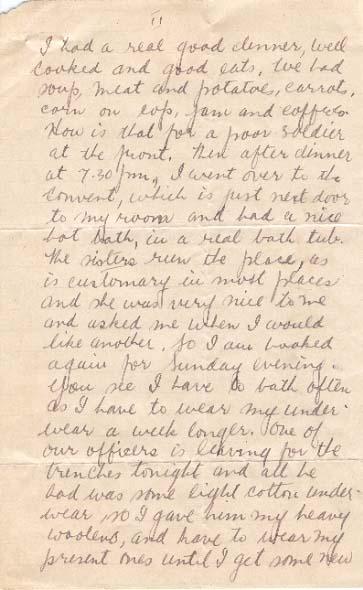 11
I had a real good dinner, well
cooked and good eats. We had
soup, meat and potatoes, carrots,
corn on cop, jam and coffee.
How is that for a poor soldier
at the front. Then after dinner
at 7.30 pm, I went over to the
convent, which is just next door
to my room and had a nice
hot bath, in a real bath tub.
The sisters run the place, as
is customary in most places
and she was very nice to me
and asked me when I would
like another. So I am booked
again for Sunday evening.
You see I have to bath often
as I have to wear my under-
wear a week longer. One of
our officers is leaving for the
trenches tonight and all he
had was some light cotton under-
wear, so I gave him my heavy
woolens, and have to wear my
present ones until I get some new